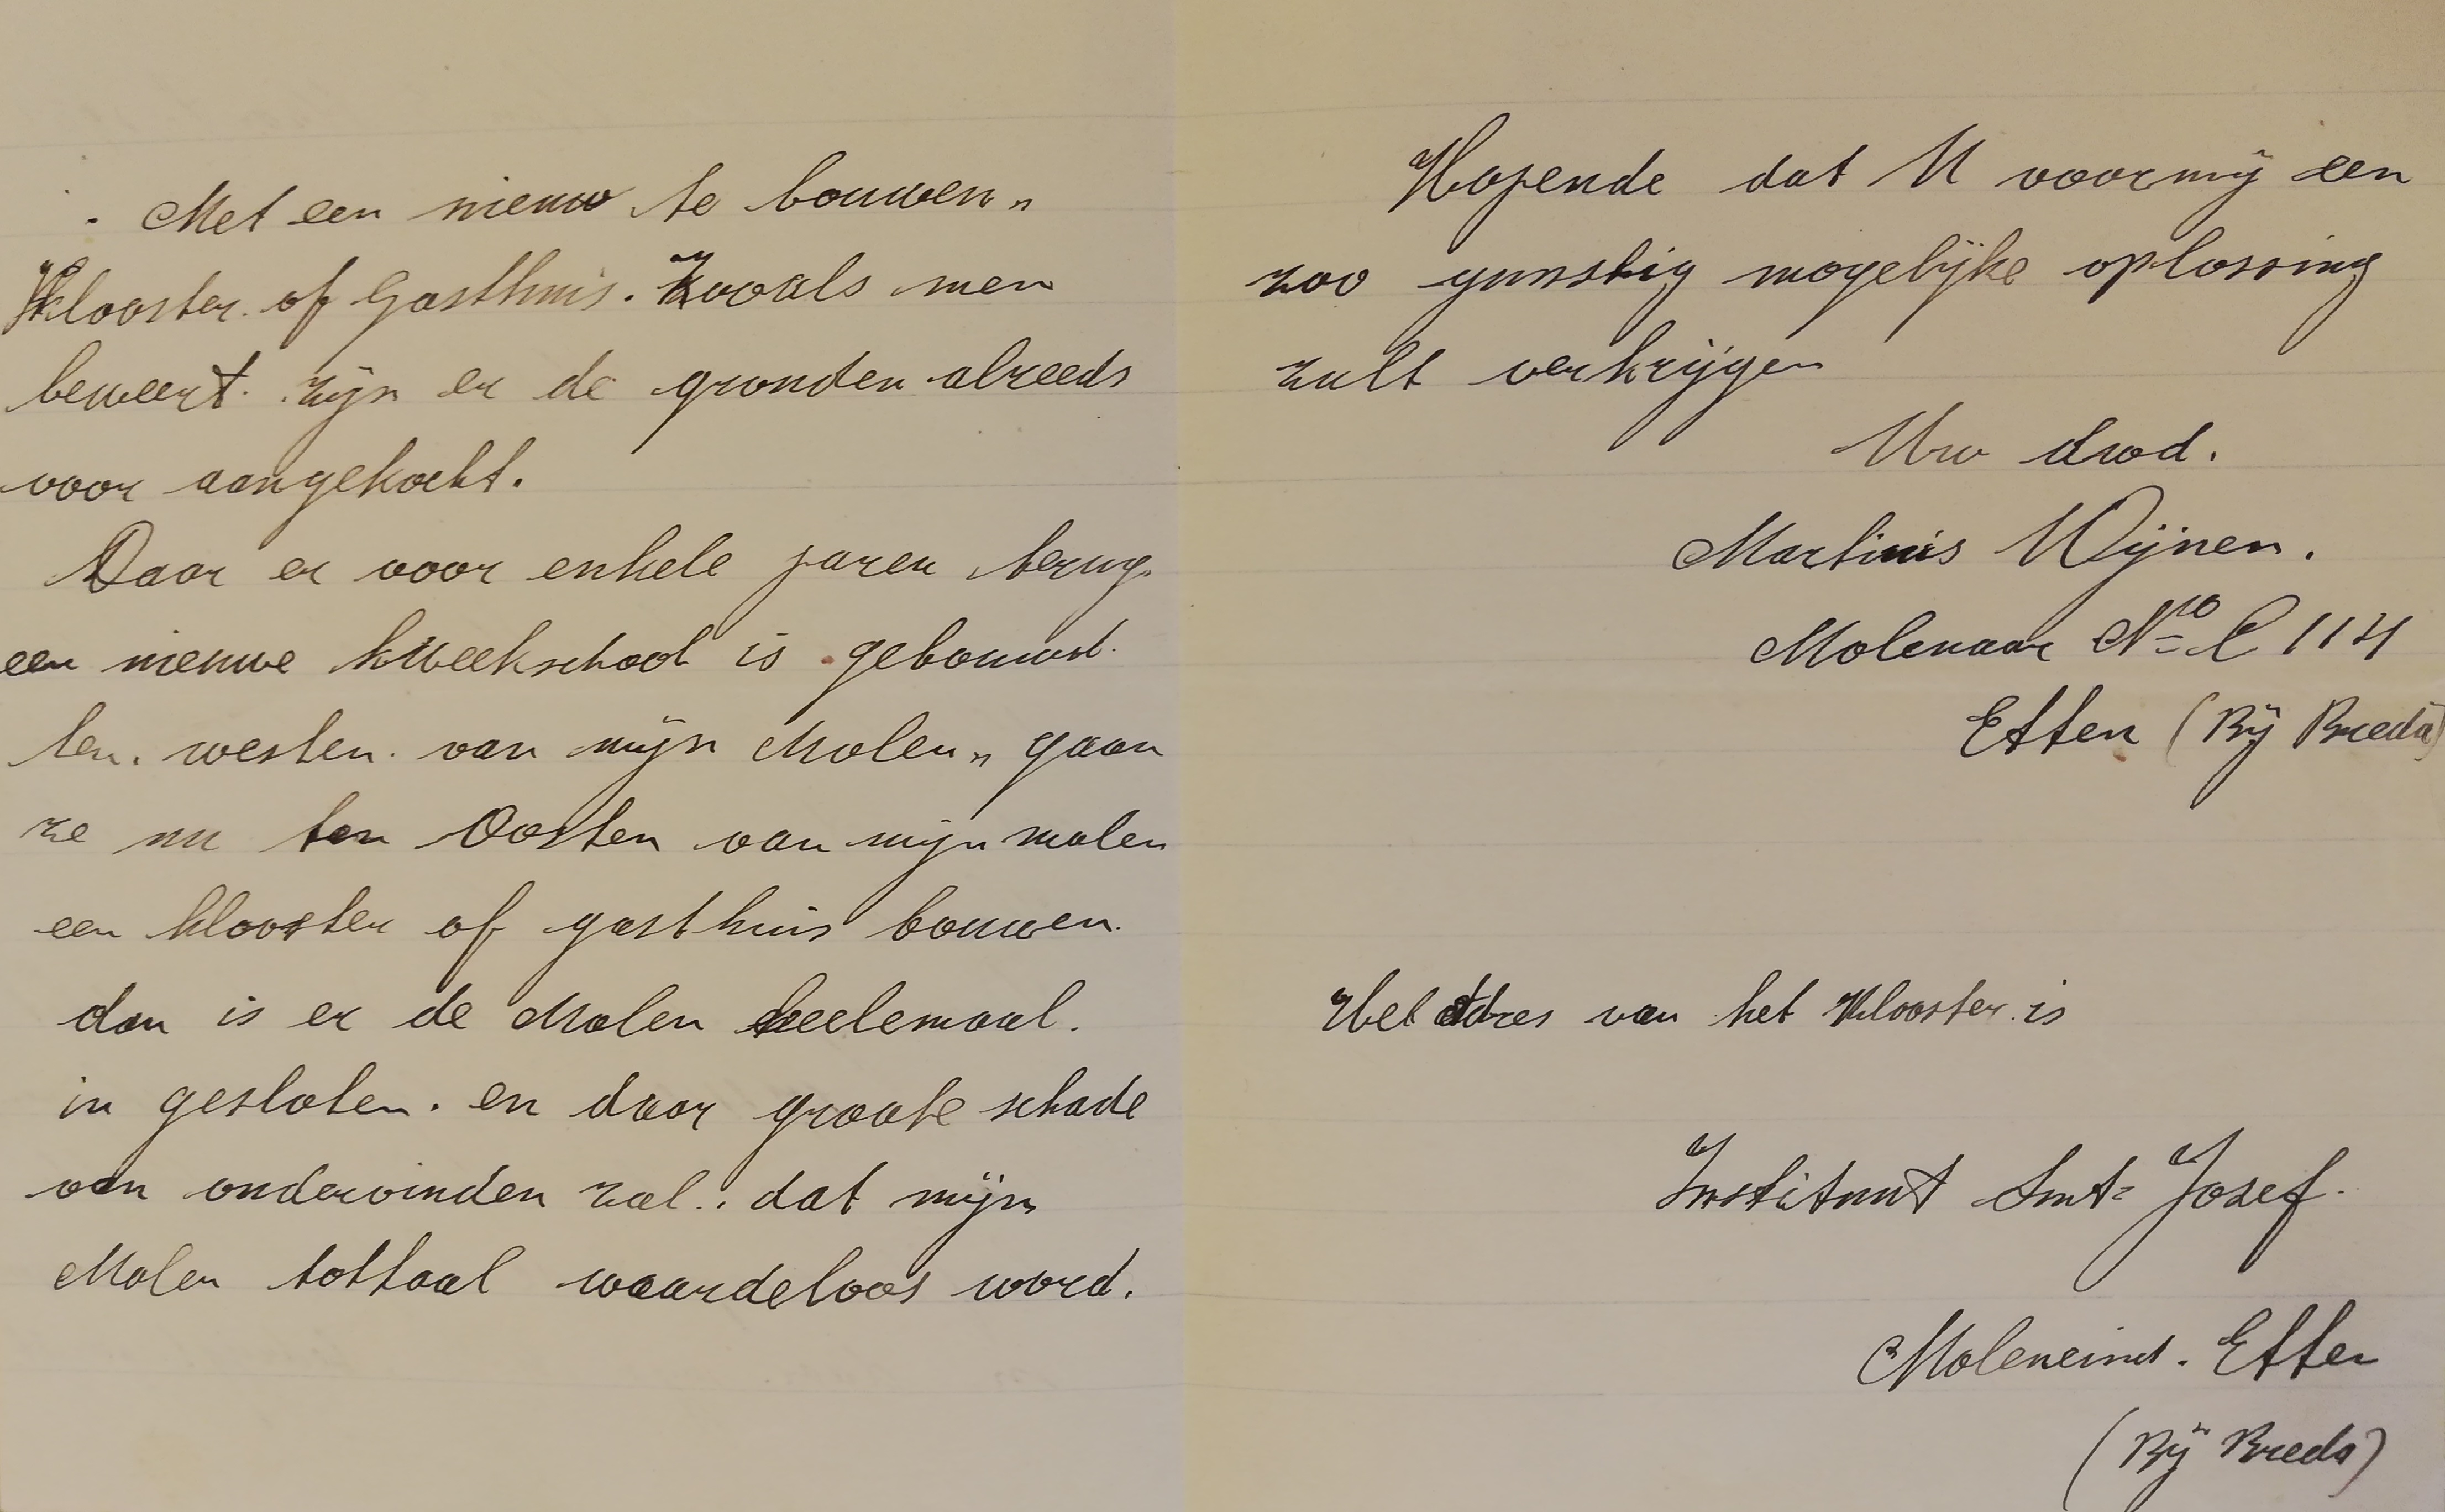 . Met een nieuw te bouwen„
Klooster. of Gasthuis. Zooals men
beweert. zijn er de gronden alreeds
voor aangekocht.
Daar er voor enkele jaren terug.
een nieuwe kweekschool is gebouwd.
ten. westen. van mijn Molen„ gaan
ze nu ten Oosten van mijn molen
een klooster of gasthuis bouwen.
dan is er de Molen heelemaal.
in gesloten. en daar groote schade
van ondervinden zal.. dat mijn
Molen tottaal waardeloos word.
Hopende dat U voor mij een
zoo gunstig mogelijke oplossing
zult verkrijgen
Uw dwd.
Martinis Wijnen.
Molenaar No C 114
Etten (Bij Breda)
Het adres van het Klooster. is
Instituut Snt= Josef.
Moleneind. Etten
(Bij Breda)